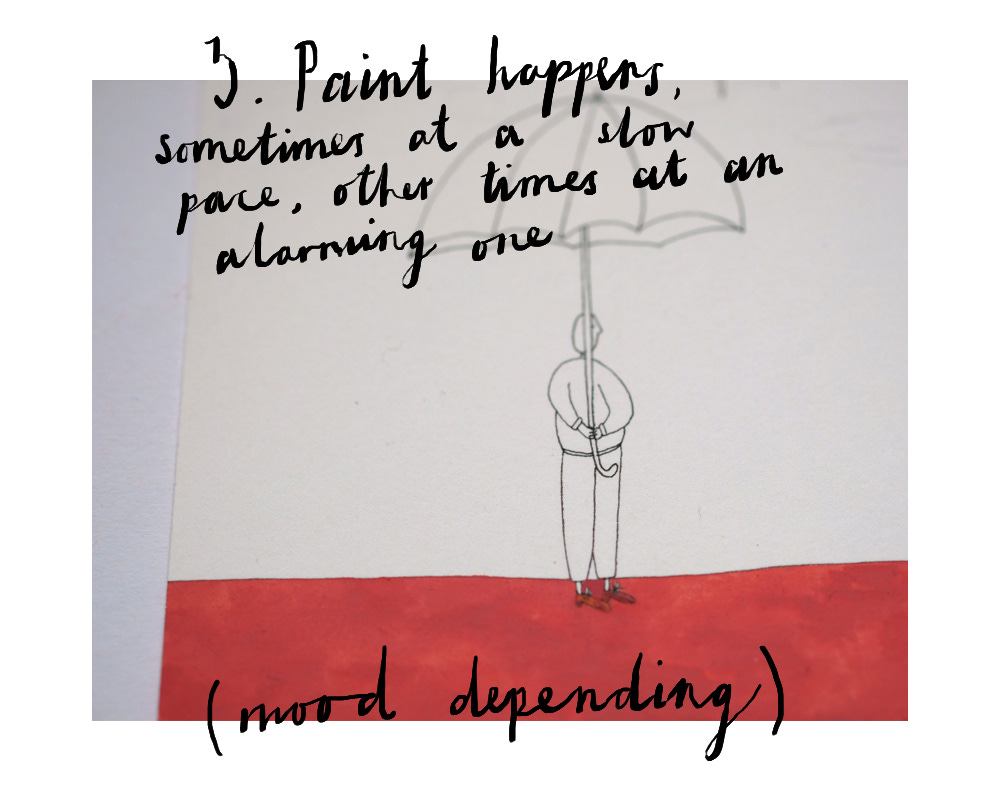 3. Paint happens,
sometimes at a slow
pace, other times at an
alarming one
(mood depending)